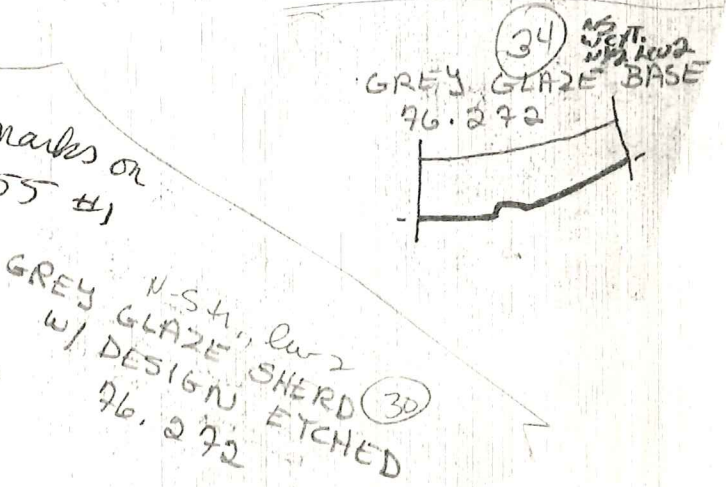 34
NS
W EXT.
Lev 2
GREY GLAZE BASE
76.272
marks on
55 #1
N-Str., lev 2
GREY GLAZE SHERD 30
W/ DESIGN ETCHED
76.272